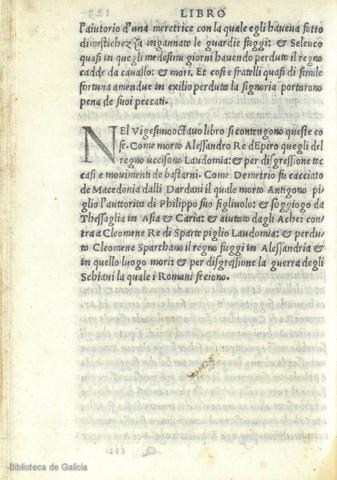 LIBRO
l'aiutorio d'una meretrice con la quale egli haveva fatto
dimestichezza ingannate le guardie fuggi: & Seleuco
quasi in quegli medesimi giorni havendo perduto il regno
cadde da cavallo: & mori. Et cosi e fratelli quasi di simile
fortuna amendue in exilio perduta la signoria portorono
pena de suoi peccati.
NEl Vigesimooctavo libro si contengono queste co
se. Come morto Alessandro Re d'Epiro quegli del
regno uccisono Laudomia: & per disgressione toc
casi e movimenti de bastarni. Come Demetrio fu cacciato
de Macedonia dalli Dardani il quale morto Antigono pi
glio l'auttorita di Philippo suo figliuolo: & soggiogo da
Thessaglia in Asia & Caria: & aiutato dagli Achei con
tra a Cleomene Re di Sparte piglio Laudomia: & perdu
to Cleomene Sparthano il regno fuggi in Alessandria &
in quello luogo mori: & per disgressione la guerra degli
Schiavi la quale i Romani feciono.
Biblioteca de Galicia